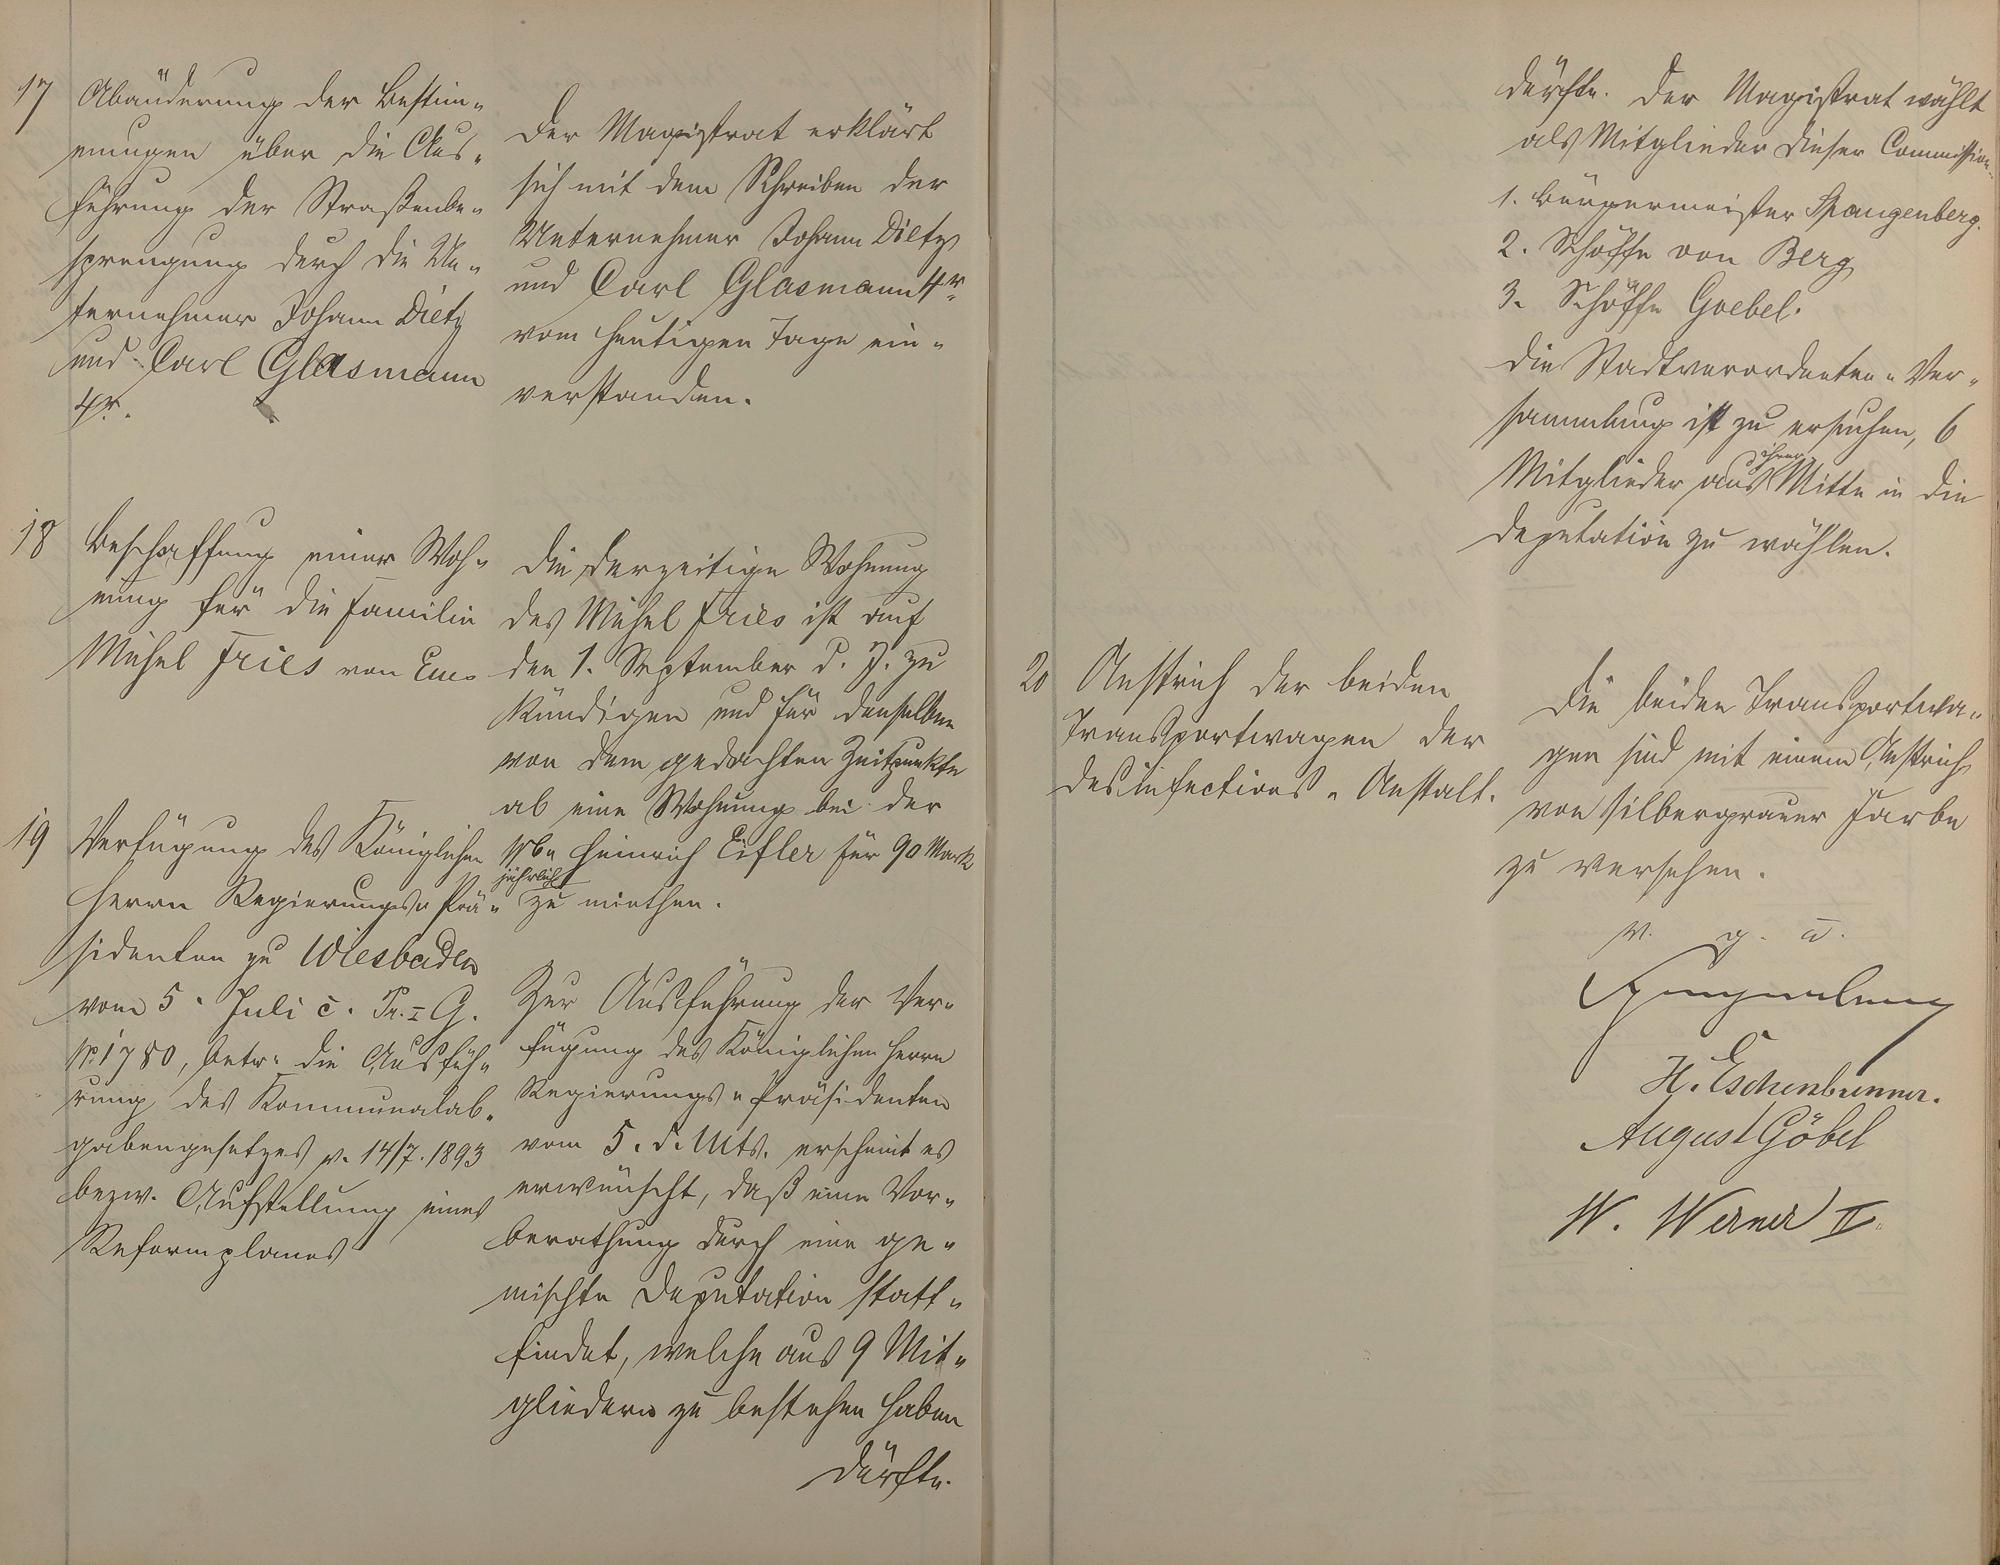 17
Abänderung der Bestim-
mungen über die Aus-
führung der Straßenbe-
sprengung durch die Un-
ternehmer Johann Dietz
und Carl Glasmann
4r.
Der Magistrat erklärt
sich mit dem Schreiben der
Unternehmer Johann Dietz
und Carl Glasmann 4r.
vom heutigen Tage ein-
verstanden.
18
Beschaffung einer Woh-
nung für die Familie
Michel Fries von Ems
Die derzeitige Wohnung
des Michel Fries ist auf
den 1. September d. J. zu
kündigen und für denselben
von dem gedachten Zeitpunkte
ab eine Wohnung bei der
Wb. Heinrich Eifler für 90 Mark
jährlich zu miethen.
19
Verfügung des Königlichen
Herrn Regierungs-Prä-
sidenten zu Wiesbaden
vom 5. Juli c. Pr. I G.
No 1780, betr. die Ausfüh-
rung des Kommunalab-
gabengesetzes v. 14/7. 1893
bezw. Aufstellung eines
Reformplanes
Zur Ausführung der Ver-
fügung des Königlichen Herrn
Regierungs-Präsidenten
vom 5. d. Mts. erscheint es
erwünscht, daß eine Vor-
berathung durch eine ge-
mischte Deputation statt-
findet, welche aus 9 Mit-
gliedern zu bestehen haben
dürfte.
dürfte. Der Magistrat wählt
als Mitglieder dieser Commission
1. Bürgermeister Spangenberg.
2. Schöffe von Berg
3. Schöffe Goebel.
Die Stadtverordneten-Ver-
sammlung ist zu ersuchen, 6
Mitglieder aus ihrer Mitte in die
Deputation zu wählen.
20
Anstrich der beiden
Transportwagen der
Desinfections-Anstalt.
Die beiden Transportwa-
gen sind mit einem Anstrich
von silbergrauer Farbe
zu versehen.
v. g. u.
Spangenberg
H. Eschenbrenner.
August Göbel
W. Werner II.